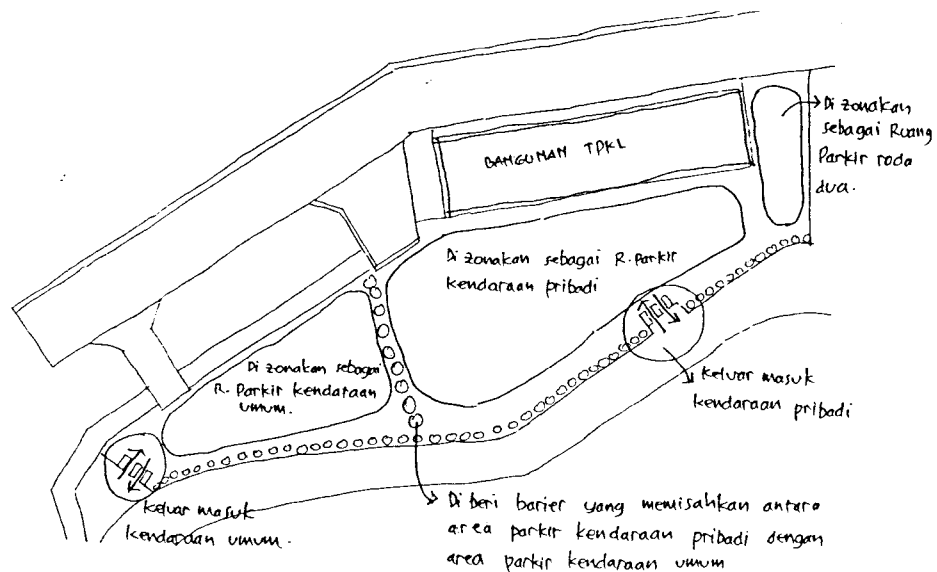 Di zonakan
sebagai Ruang
Parkir roda
dua.
BANGUNAN TPKL
Di zonakan sebagai R. Parkir
kendaraan pribadi
Di zonakan sebagai
R. Parkir kendaraan
umum.
keluar masuk
kendaraan pribadi
keluar masuk
kendaraan umum.
Di beri barier yang memisahkan antara
area parkir kendaraan pribadi dengan
area parkir kendaraan umum